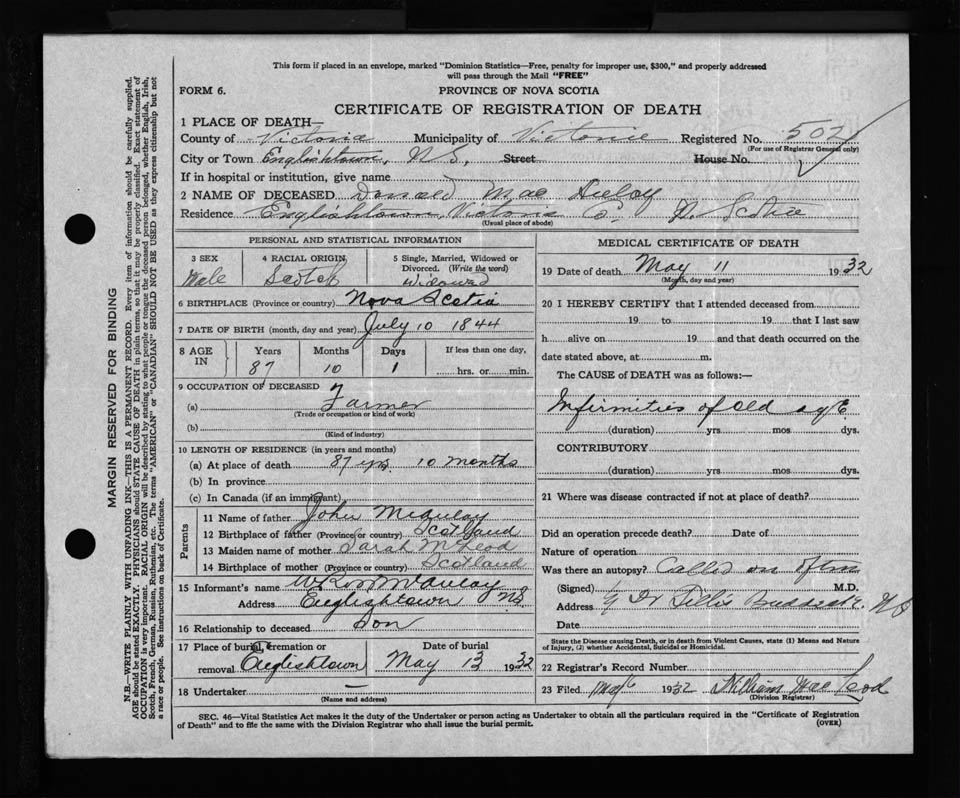 This form if placed in an envelope, marked "Dominion Statistics—Free, penalty for improper use, $300," and properly addressed
will pass through the Mail "FREE"
FORM 6. PROVINCE OF NOVA SCOTIA
CERTIFICATE OF REGISTRATION OF DEATH
1 PLACE OF DEATH—
County of Victoria Municipality of Victoria Registered No. 502
(For use of Registrar General only)
City or Town Englishtown, N.S. Street House No.
If in hospital or institution, give name
2 NAME OF DECEASED Donald Mac Auley
Residence Englishtown, Victoria Co. N. Scotia
(Usual place of abode)
PERSONAL AND STATISTICAL INFORMATION
3 SEX 4 RACIAL ORIGIN 5 Single, Married, Widowed or Divorced. (Write the word)
Male Scotch Widowed
6 BIRTHPLACE (Province or country) Nova Scotia
7 DATE OF BIRTH (month, day and year) July 10 1844
8 AGE IN Years Months Days If less than one day,
87 10 1 hrs. or min.
9 OCCUPATION OF DECEASED
(a) Farmer
(Trade or occupation or kind of work)
(b)
(Kind of industry)
10 LENGTH OF RESIDENCE (in years and months)
(a) At place of death 87 yrs. 10 months
(b) In province
(c) In Canada (if an immigrant)
Parents
11 Name of father John McAulay
12 Birthplace of father (Province or country) Scotland
13 Maiden name of mother Sarah McLeod
14 Birthplace of mother (Province or country) Scotland
15 Informant's name McAulay
Address Englishtown N.S.
16 Relationship to deceased Son
17 Place of burial, cremation or removal Englishtown
Date of burial May 13 1932
18 Undertaker
(Name and address)
MEDICAL CERTIFICATE OF DEATH
19 Date of death May 11 1932
(Month, day and year)
20 I HEREBY CERTIFY that I attended deceased from
19 to 19 that I last saw
h alive on 19 and that death occurred on the
date stated above, at m.
The CAUSE of DEATH was as follows:—
Infirmities of old age
(duration) yrs mos dys.
CONTRIBUTORY
(duration) yrs mos dys.
21 Where was disease contracted if not at place of death?
Did an operation precede death? Date of
Nature of operation
Was there an autopsy? Called on
(Signed) M.D.
Address Dr
Date
State the Disease causing Death, or in death from Violent Causes, state (1) Means and Nature
of Injury, (2) whether Accidental, Suicidal or Homicidal.
22 Registrar's Record Number
23 Filed 1932 William MacLeod
(Division Registrar)
SEC. 46—Vital Statistics Act makes it the duty of the Undertaker or person acting as Undertaker to obtain all the particulars required in the "Certificate of Registration
of Death" and to file the same with the Division Registrar who shall issue the burial permit. (OVER)
MARGIN RESERVED FOR BINDING
N.B.—WRITE PLAINLY WITH UNFADING INK—THIS IS A PERMANENT RECORD. Every item of information should be carefully supplied.
AGE should be stated EXACTLY. PHYSICIANS should STATE CAUSE OF DEATH in plain terms, so that it may be properly classified. Exact statement of
OCCUPATION is very important. RACIAL ORIGIN will be described by stating to what people or tongue the deceased person belonged, whether English, Irish,
Scotch, French, German, Russian, Ruthenian, etc. The terms "AMERICAN" or "CANADIAN" SHOULD NOT BE USED as they express citizenship but not
a race or people. See instructions on back of Certificate.